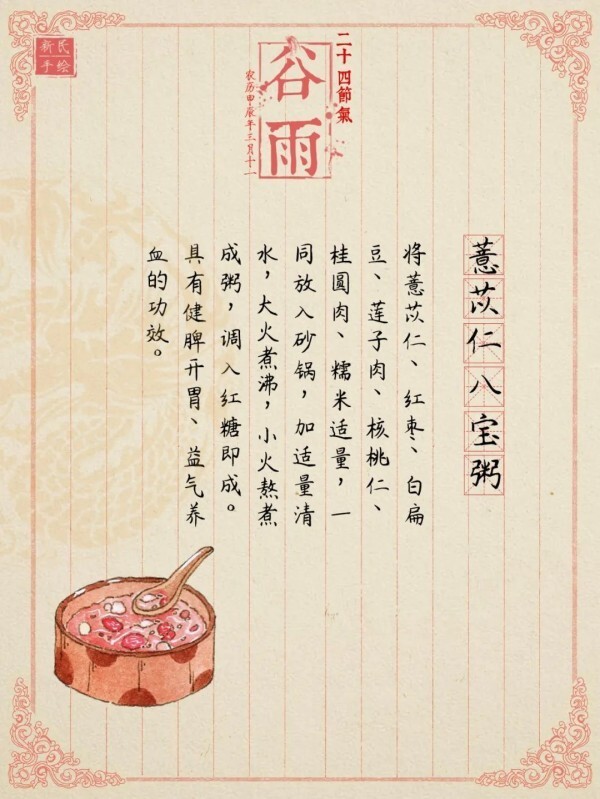 新民
手绘
二十四節氣
谷雨
农历甲辰年三月十一
薏苡仁八宝粥
将薏苡仁、红枣、白扁
豆、莲子肉、核桃仁、
桂圆肉、糯米适量，一
同放入砂锅，加适量清
水，大火煮沸，小火熬煮
成粥，调入红糖即成。
具有健脾开胃、益气养
血的功效。